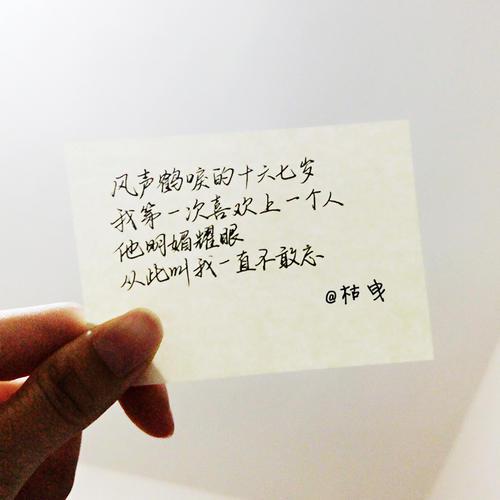 风声鹤唳的十六七岁
我第一次喜欢上一个人
他明媚耀眼
从此叫我一直不敢忘
@枯曳